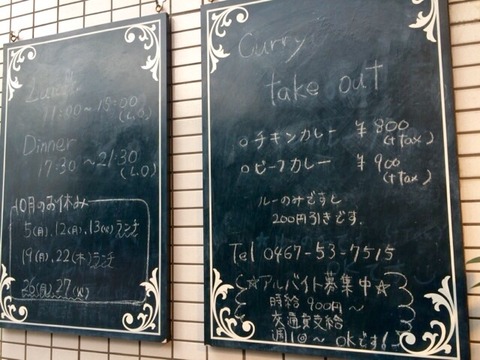 Lunch
11:00～15:00
(L.O)
Dinner
17:30～21:30
(L.O)
10月のお休み
5(月),12(月),13(火)ランチ
19(月),22(木)ランチ
26(月),27(火)
Curry
take out
○チキンカレー ￥800
(+tax)
○ビーフカレー ￥900
(+tax)
ルーのみですと
200円引きです.
Tel 0467-53-7515
☆アルバイト募集中☆
時給 900円～
交通費支給
週1回～OKです!